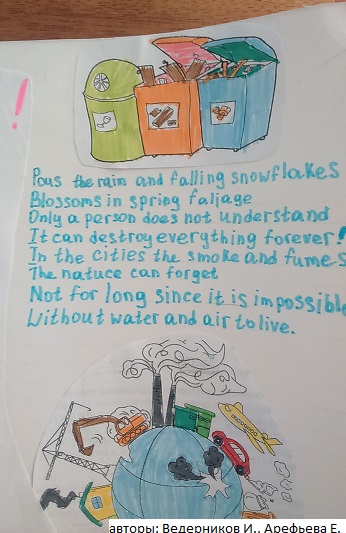 !
Pous the rain and falling snowflakes
Blossoms in spring faljage
Only a person does not understand
It can destroy everything forever!
In the cities the smoke and fumes
The natuce can forget
Not for long since it is impossible
Without water and air to live.
авторы: Ведерников И., Арефьева Е.